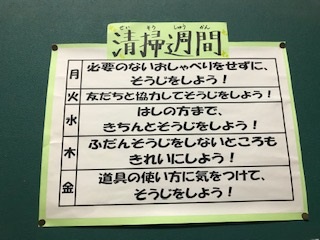 せい そう しゅう かん
清掃週間
月 必要のないおしゃべりをせずに、
そうじをしよう！
火 友だちと協力してそうじをしよう！
水 はしの方まで、
きちんとそうじをしよう！
木 ふだんそうじをしないところも
きれいにしよう！
金 道具の使い方に気をつけて、
そうじをしよう！